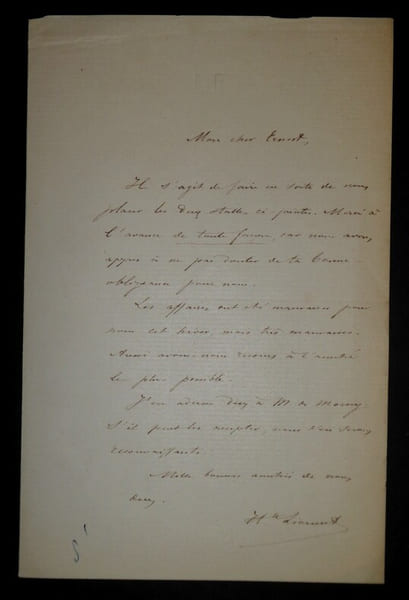 Mon cher Ernest,
Il s'agit de faire en sorte de nous
placer les deux stalles ci jointes. Merci à
l'avance de toute façon, car nous avons
appris à ne pas douter de ta bonne
obligeance pour nous.
Les affaires ont été mauvaises pour
nous cet hiver, mais très mauvaises.
Aussi avons-nous recours à l'amitié
le plus possible.
J'en adresse deux à M. de Morny.
S'il peut les accepter, nous t'en serons
reconnaissants.
Mille bonnes amitiés de nous
deux.
Hte